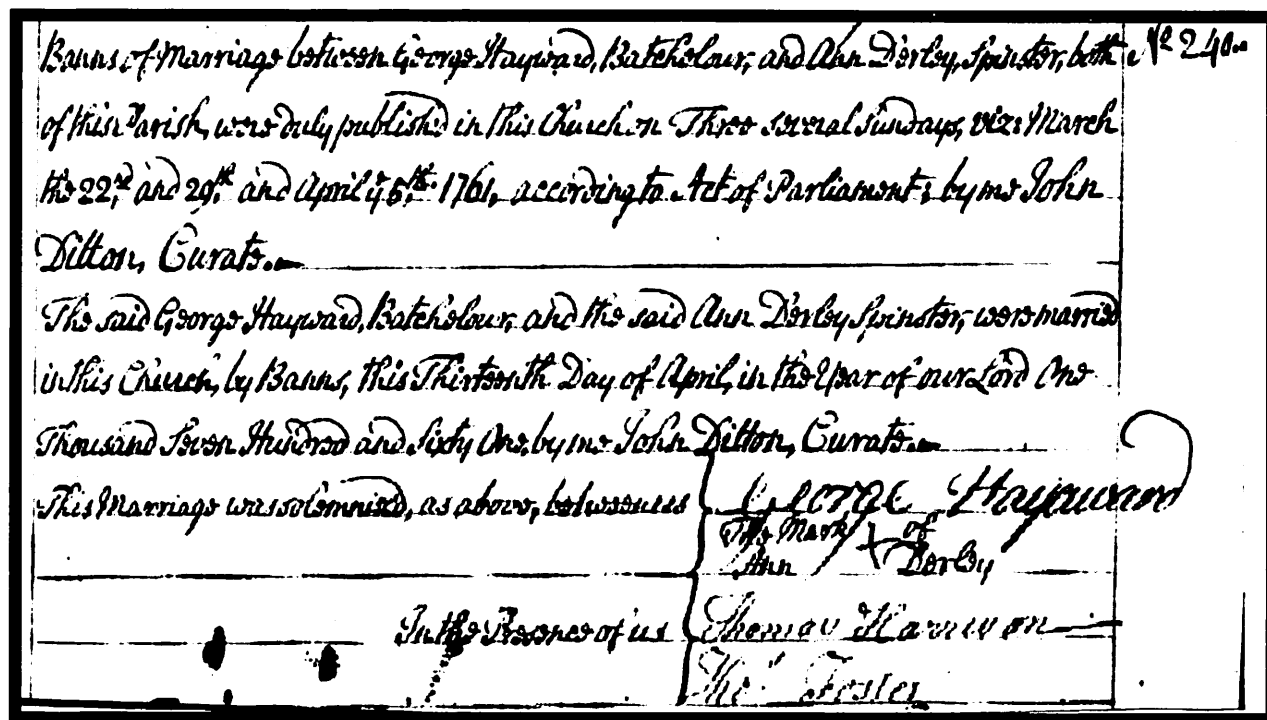 Banns of Marriage between George Hayward, Batchelour, and Ann Derley, Spinster, both Nº 240.
of this Parish, were duly published in this Church on Three several Sundays, viz: March
the 22,ᵈ and 29,ᵗʰ and April yᵉ 5,ᵗʰ 1761, according to Act of Parliament; by me John
Ditton, Curate.
The said George Hayward, Batchelour, and the said Ann Derley Spinster, were married
in this Church, by Banns, this Thirteenth Day of April, in the Year of our Lord One
Thousand Seven Hundred and Sixty One, by me John Ditton, Curate.
This Marriage was solemnized, as above, between us George Hayward
The Mark X of
Ann Derley
In the Presence of us Thomas Harrison
Thoˢ Foster